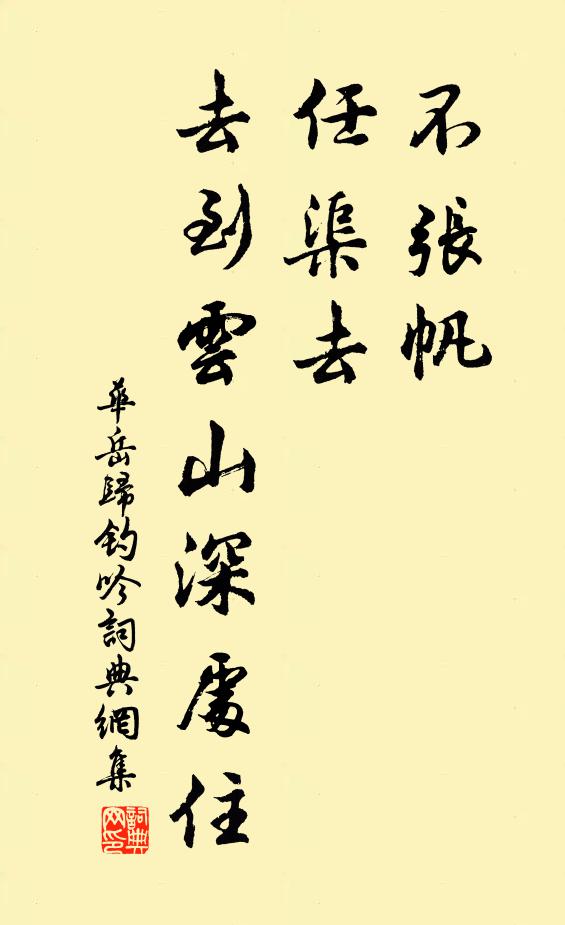 不張帆
任渠去
去到雲山深處住
華岳歸釣吟詞典網集
詞典网印